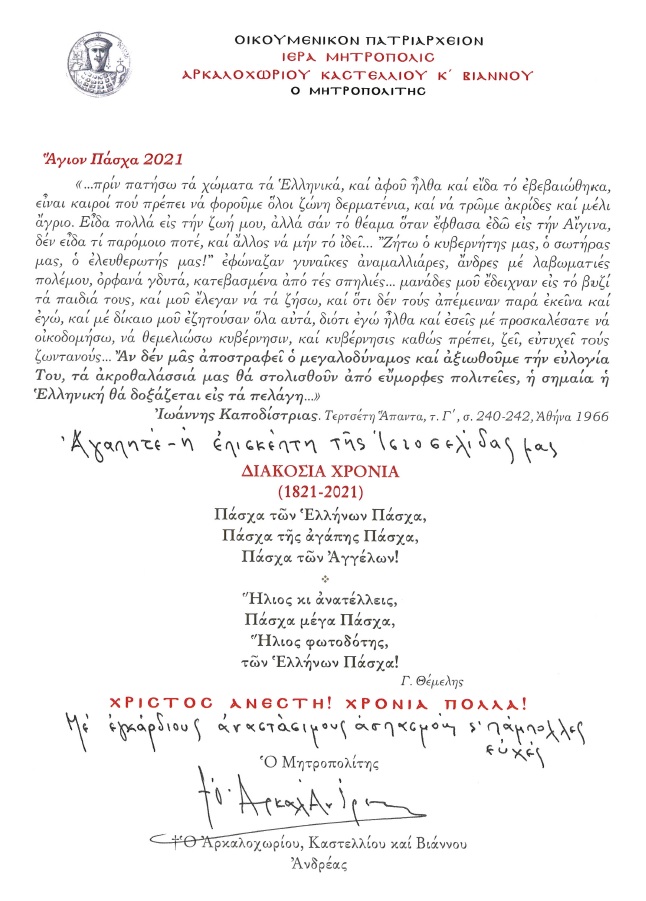 ΟΙΚΟΥΜΕΝΙΚΟΝ ΠΑΤΡΙΑΡΧΕΙΟΝ
ΙΕΡΑ ΜΗΤΡΟΠΟΛΙΣ
ΑΡΚΑΛΟΧΩΡΙΟΥ ΚΑΣΤΕΛΛΙΟΥ Κ΄ ΒΙΑΝΝΟΥ
Ο ΜΗΤΡΟΠΟΛΙΤΗΣ
Ἅγιον Πάσχα 2021
«...πρίν πατήσω τά χώματα τά Ἑλληνικά, καί ἀφοῦ ἦλθα καί εἶδα τό ἐβεβαιώθηκα,
εἶναι καιροί πού πρέπει νά φοροῦμε ὅλοι ζώνη δερματένια, καί νά τρῶμε ἀκρίδες καί μέλι
ἄγριο. Εἶδα πολλά εἰς τήν ζωή μου, ἀλλά σάν τό θέαμα ὅταν ἔφθασα ἐδῶ εἰς τήν Αἴγινα,
δέν εἶδα τί παρόμοιο ποτέ, καί ἄλλος νά μήν τό ἰδεῖ... "Ζήτω ὁ κυβερνήτης μας, ὁ σωτήρας
μας, ὁ ἐλευθερωτής μας!" ἐφώναζαν γυναῖκες ἀναμαλλιάρες, ἄνδρες μέ λαβωματιές
πολέμου, ὀρφανά γδυτά, κατεβασμένα ἀπό τές σπηλιές... μανάδες μοῦ ἔδειχναν εἰς τό βυζί
τά παιδιά τους, καί μοῦ ἔλεγαν νά τά ζήσω, καί ὅτι δέν τούς ἀπέμειναν παρά ἐκεῖνα καί
ἐγώ, καί μέ δίκαιο μοῦ ἐζητοῦσαν ὅλα αὐτά, διότι ἐγώ ἦλθα καί ἐσεῖς μέ προσκαλέσατε νά
οἰκοδομήσω, νά θεμελιώσω κυβέρνησιν, καί κυβέρνησις καθώς πρέπει, ζεῖ, εὐτυχεῖ τούς
ζωντανούς... Ἄν δέν μᾶς ἀποστραφεῖ ὁ μεγαλοδύναμος καί ἀξιωθοῦμε τήν εὐλογία
Του, τά ἀκροθαλάσσιά μας θά στολισθοῦν ἀπό εὔμορφες πολιτεῖες, ἡ σημαία ἡ
Ἑλληνική θά δοξάζεται εἰς τά πελάγη...»
Ἰωάννης Καποδίστριας. Τερτσέτη Ἅπαντα, τ. Γ΄, σ. 240-242, Ἀθήνα 1966
Ἀγαπητέ-ή ἐπισκέπτη τῆς Ἱστοσελίδας μας
ΔΙΑΚΟΣΙΑ ΧΡΟΝΙΑ
(1821-2021)
Πάσχα τῶν Ἑλλήνων Πάσχα,
Πάσχα τῆς ἀγάπης Πάσχα,
Πάσχα τῶν Ἀγγέλων!
Ἥλιος κι ἀνατέλλεις,
Πάσχα μέγα Πάσχα,
Ἥλιος φωτοδότης,
τῶν Ἑλλήνων Πάσχα!
Γ. Θέμελης
ΧΡΙΣΤΟΣ ΑΝΕΣΤΗ! ΧΡΟΝΙΑ ΠΟΛΛΑ!
Μέ ἐγκάρδιους ἀναστάσιμους ἀσπασμούς κ' πάμπολλες
εὐχές
Ὁ Μητροπολίτης
†Ὁ Ἀρκαλοχωρίου, Καστελλίου καί Βιάννου
Ἀνδρέας